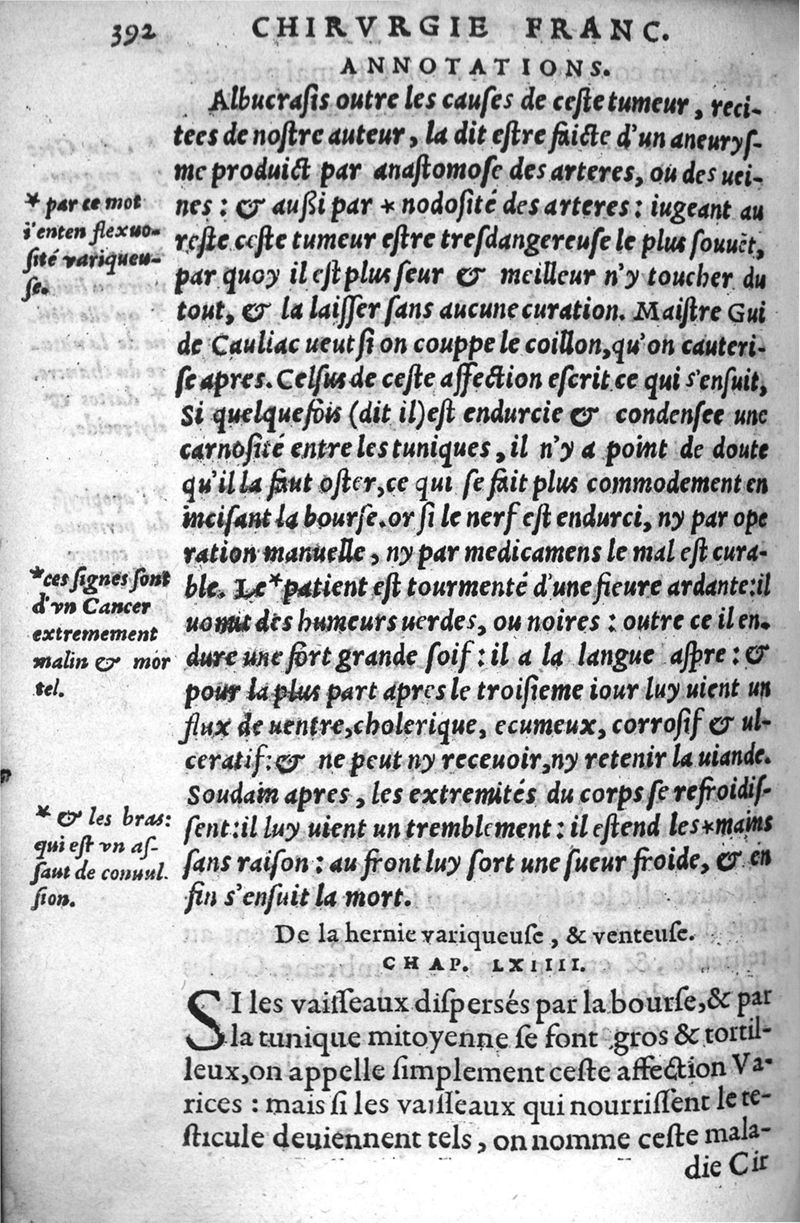 392 CHIRVRGIE FRANC.
ANNOTATIONS.
Albucrasis outre les causes de ceste tumeur, reci-
tees de nostre auteur, la dit estre faicte d'un aneurys-
me produict par anastomose des arteres, ou des uei-
nes: & außi par * nodosité des arteres: iugeant au
reste ceste tumeur estre tresdangereuse le plus souuēt,
par quoy il est plus seur & meilleur n'y toucher du
tout, & la laisser sans aucune curation. Maistre Gui
de Cauliac ueut si on couppe le coillon, qu'on cauteri-
se apres. Celsus de ceste affection escrit ce qui s'ensuit,
Si quelquefois (dit il) est endurcie & condensee une
carnosité entre les tuniques, il n'y a point de doute
qu'il la faut oster, ce qui se fait plus commodement en
incisant la bourse. or si le nerf est endurci, ny par ope
ration manuelle, ny par medicamens le mal est cura-
ble. Le *patient est tourmenté d'une fieure ardante: il
uomit des humeurs uerdes, ou noires: outre ce il en-
dure une fort grande soif: il a la langue aspre: &
pour la plus part apres le troisieme iour luy uient un
flux de uentre, cholerique, ecumeux, corrosif & ul-
ceratif: & ne peut ny receuoir, ny retenir la uiande.
Soudain apres, les extremités du corps se refroidis-
sent: il luy uient un tremblement: il estend les *mains
sans raison: au front luy sort une sueur froide, & en
fin s'ensuit la mort.
* par ce mot
i'enten flexuo-
sité variqueu-
se.
*ces signes sont
d'vn Cancer
extremement
malin & mor
tel.
* & les bras:
qui est vn as-
saut de conuul.
sion.
De la hernie variqueuse, & venteuse.
CHAP. LXIIII.
SI les vaisseaux dispersés par la bourse, & par
la tunique mitoyenne se font gros & tortil-
leux, on appelle simplement ceste affection Va-
rices: mais si les vaisseaux qui nourrissent le te-
sticule deuiennent tels, on nomme ceste mala-
die Cir